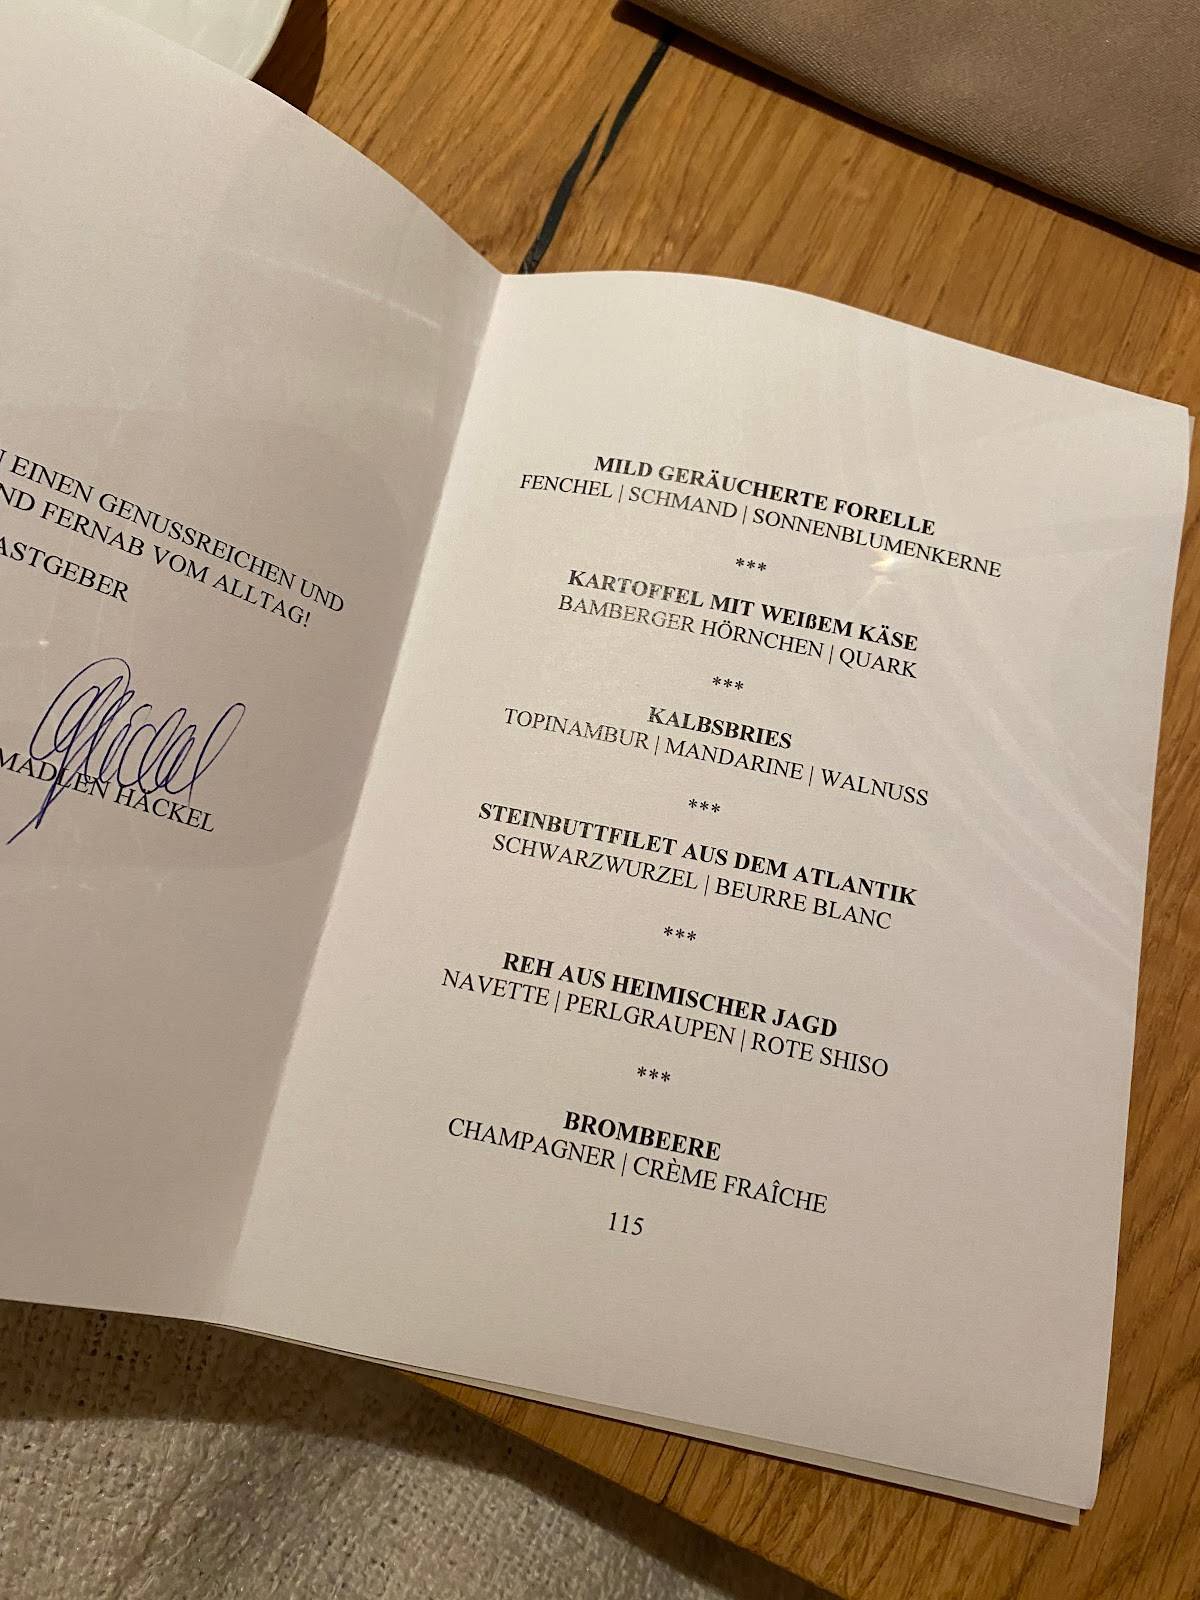 EINEN GENUSSREICHEN UND
ND FERNAB VOM ALLTAG!
ASTGEBER
MADLEN HÄCKEL
MILD GERÄUCHERTE FORELLE
FENCHEL | SCHMAND | SONNENBLUMENKERNE
***
KARTOFFEL MIT WEIßEM KÄSE
BAMBERGER HÖRNCHEN | QUARK
***
KALBSBRIES
TOPINAMBUR | MANDARINE | WALNUSS
***
STEINBUTTFILET AUS DEM ATLANTIK
SCHWARZWURZEL | BEURRE BLANC
***
REH AUS HEIMISCHER JAGD
NAVETTE | PERLGRAUPEN | ROTE SHISO
***
BROMBEERE
CHAMPAGNER | CRÈME FRAÎCHE
115